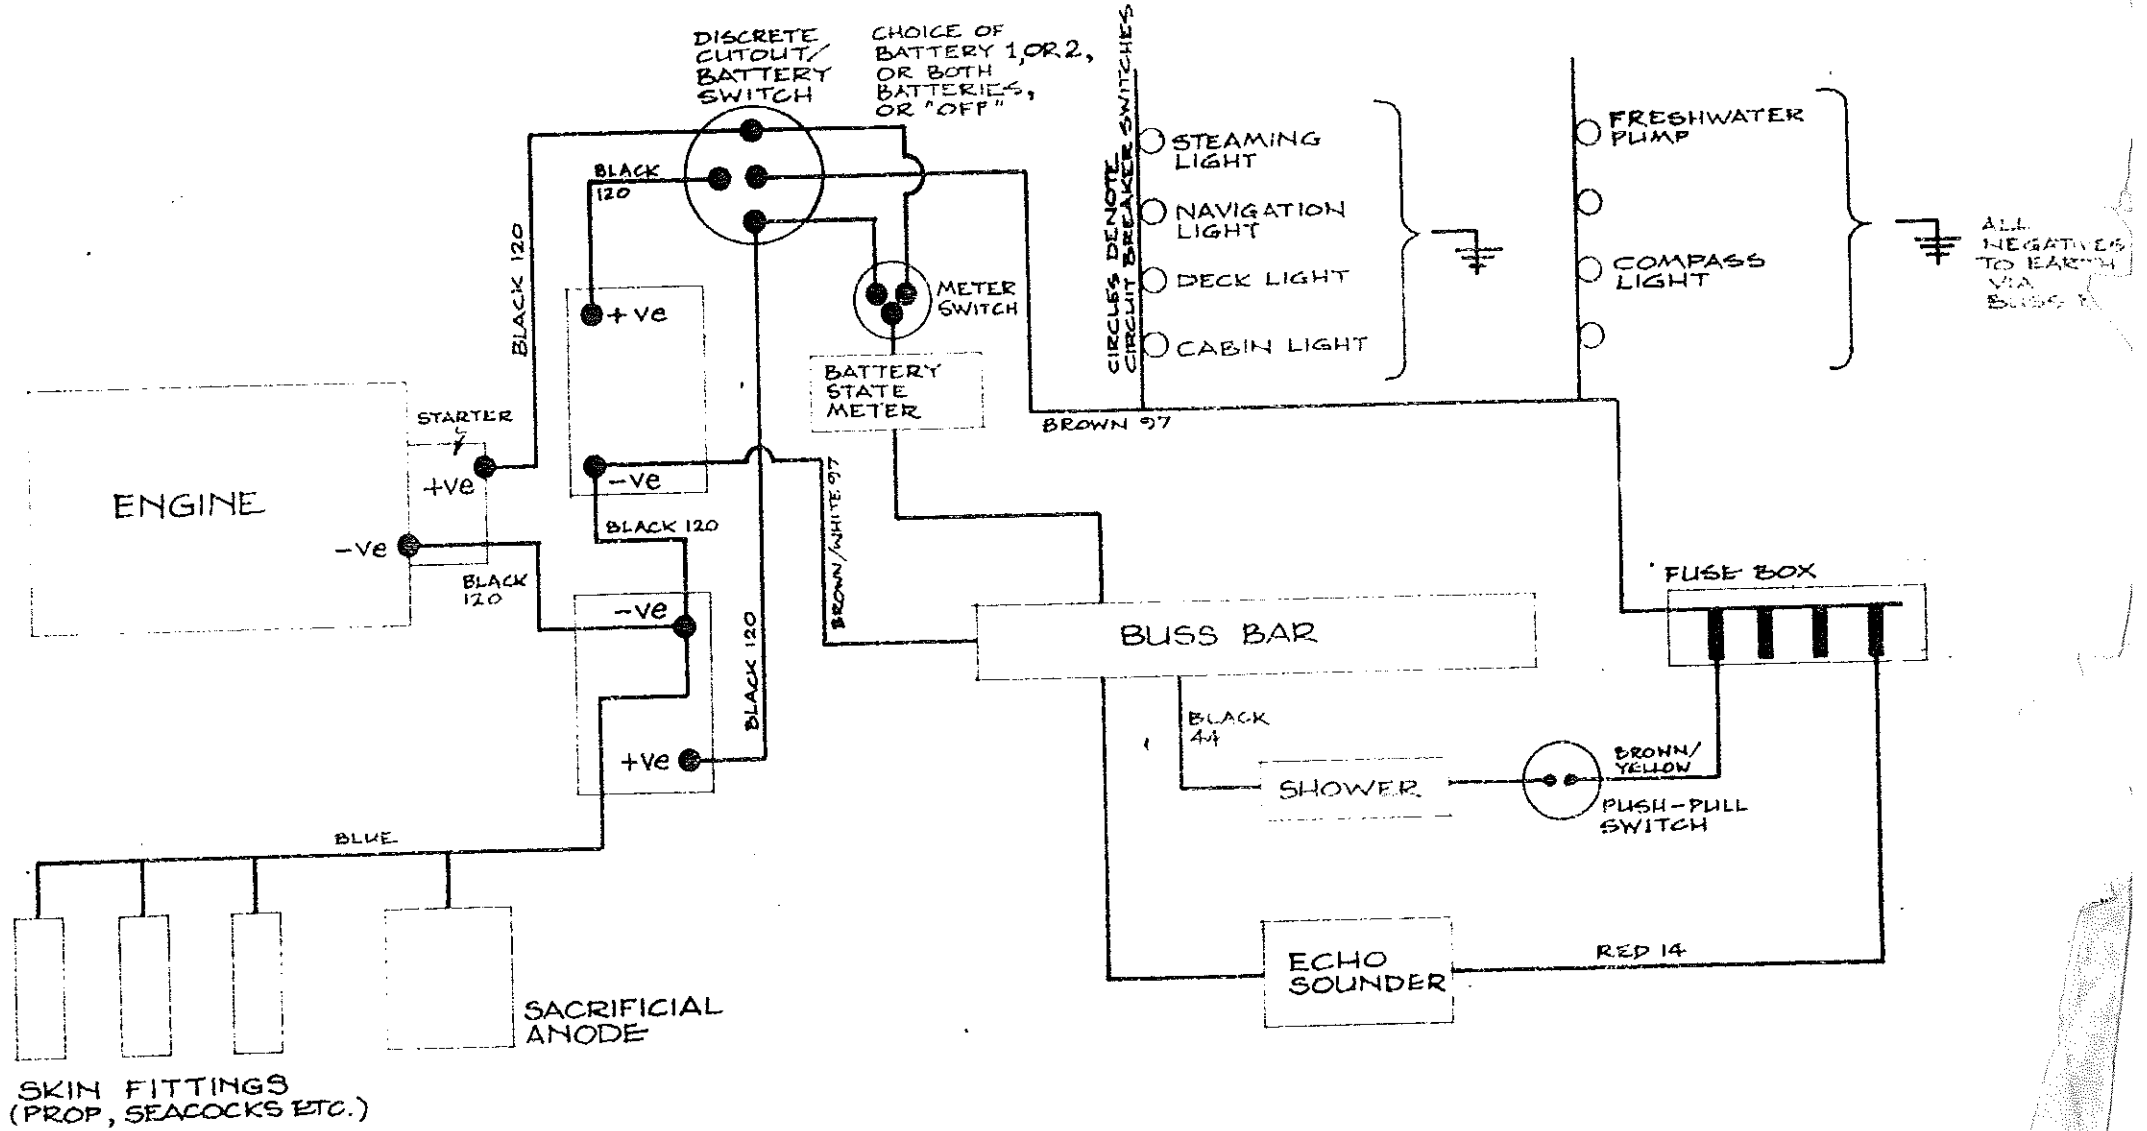 DISCRETE
CUTOUT/
BATTERY
SWITCH
CHOICE OF
BATTERY 1, OR 2,
OR BOTH
BATTERIES,
OR "OFF"
CIRCLES DENOTE
CIRCUIT BREAKER SWITCHES
STEAMING
LIGHT
NAVIGATION
LIGHT
DECK LIGHT
CABIN LIGHT
FRESHWATER
PUMP
COMPASS
LIGHT
ALL
NEGATIVES
TO EARTH
VIA
BUSS
BLACK
120
BLACK 120
+ve
METER
SWITCH
BATTERY
STATE
METER
BROWN 97
STARTER
+ve
ENGINE
-ve
-ve
BLACK 120
BLACK
120
BROWN/WHITE 97
-ve
BLACK 120
+ve
BUSS BAR
FUSE BOX
BLACK
44
SHOWER
BROWN/
YELLOW
PUSH-PULL
SWITCH
BLUE
ECHO
SOUNDER
RED 14
SACRIFICIAL
ANODE
SKIN FITTINGS
(PROP, SEACOCKS ETC.)